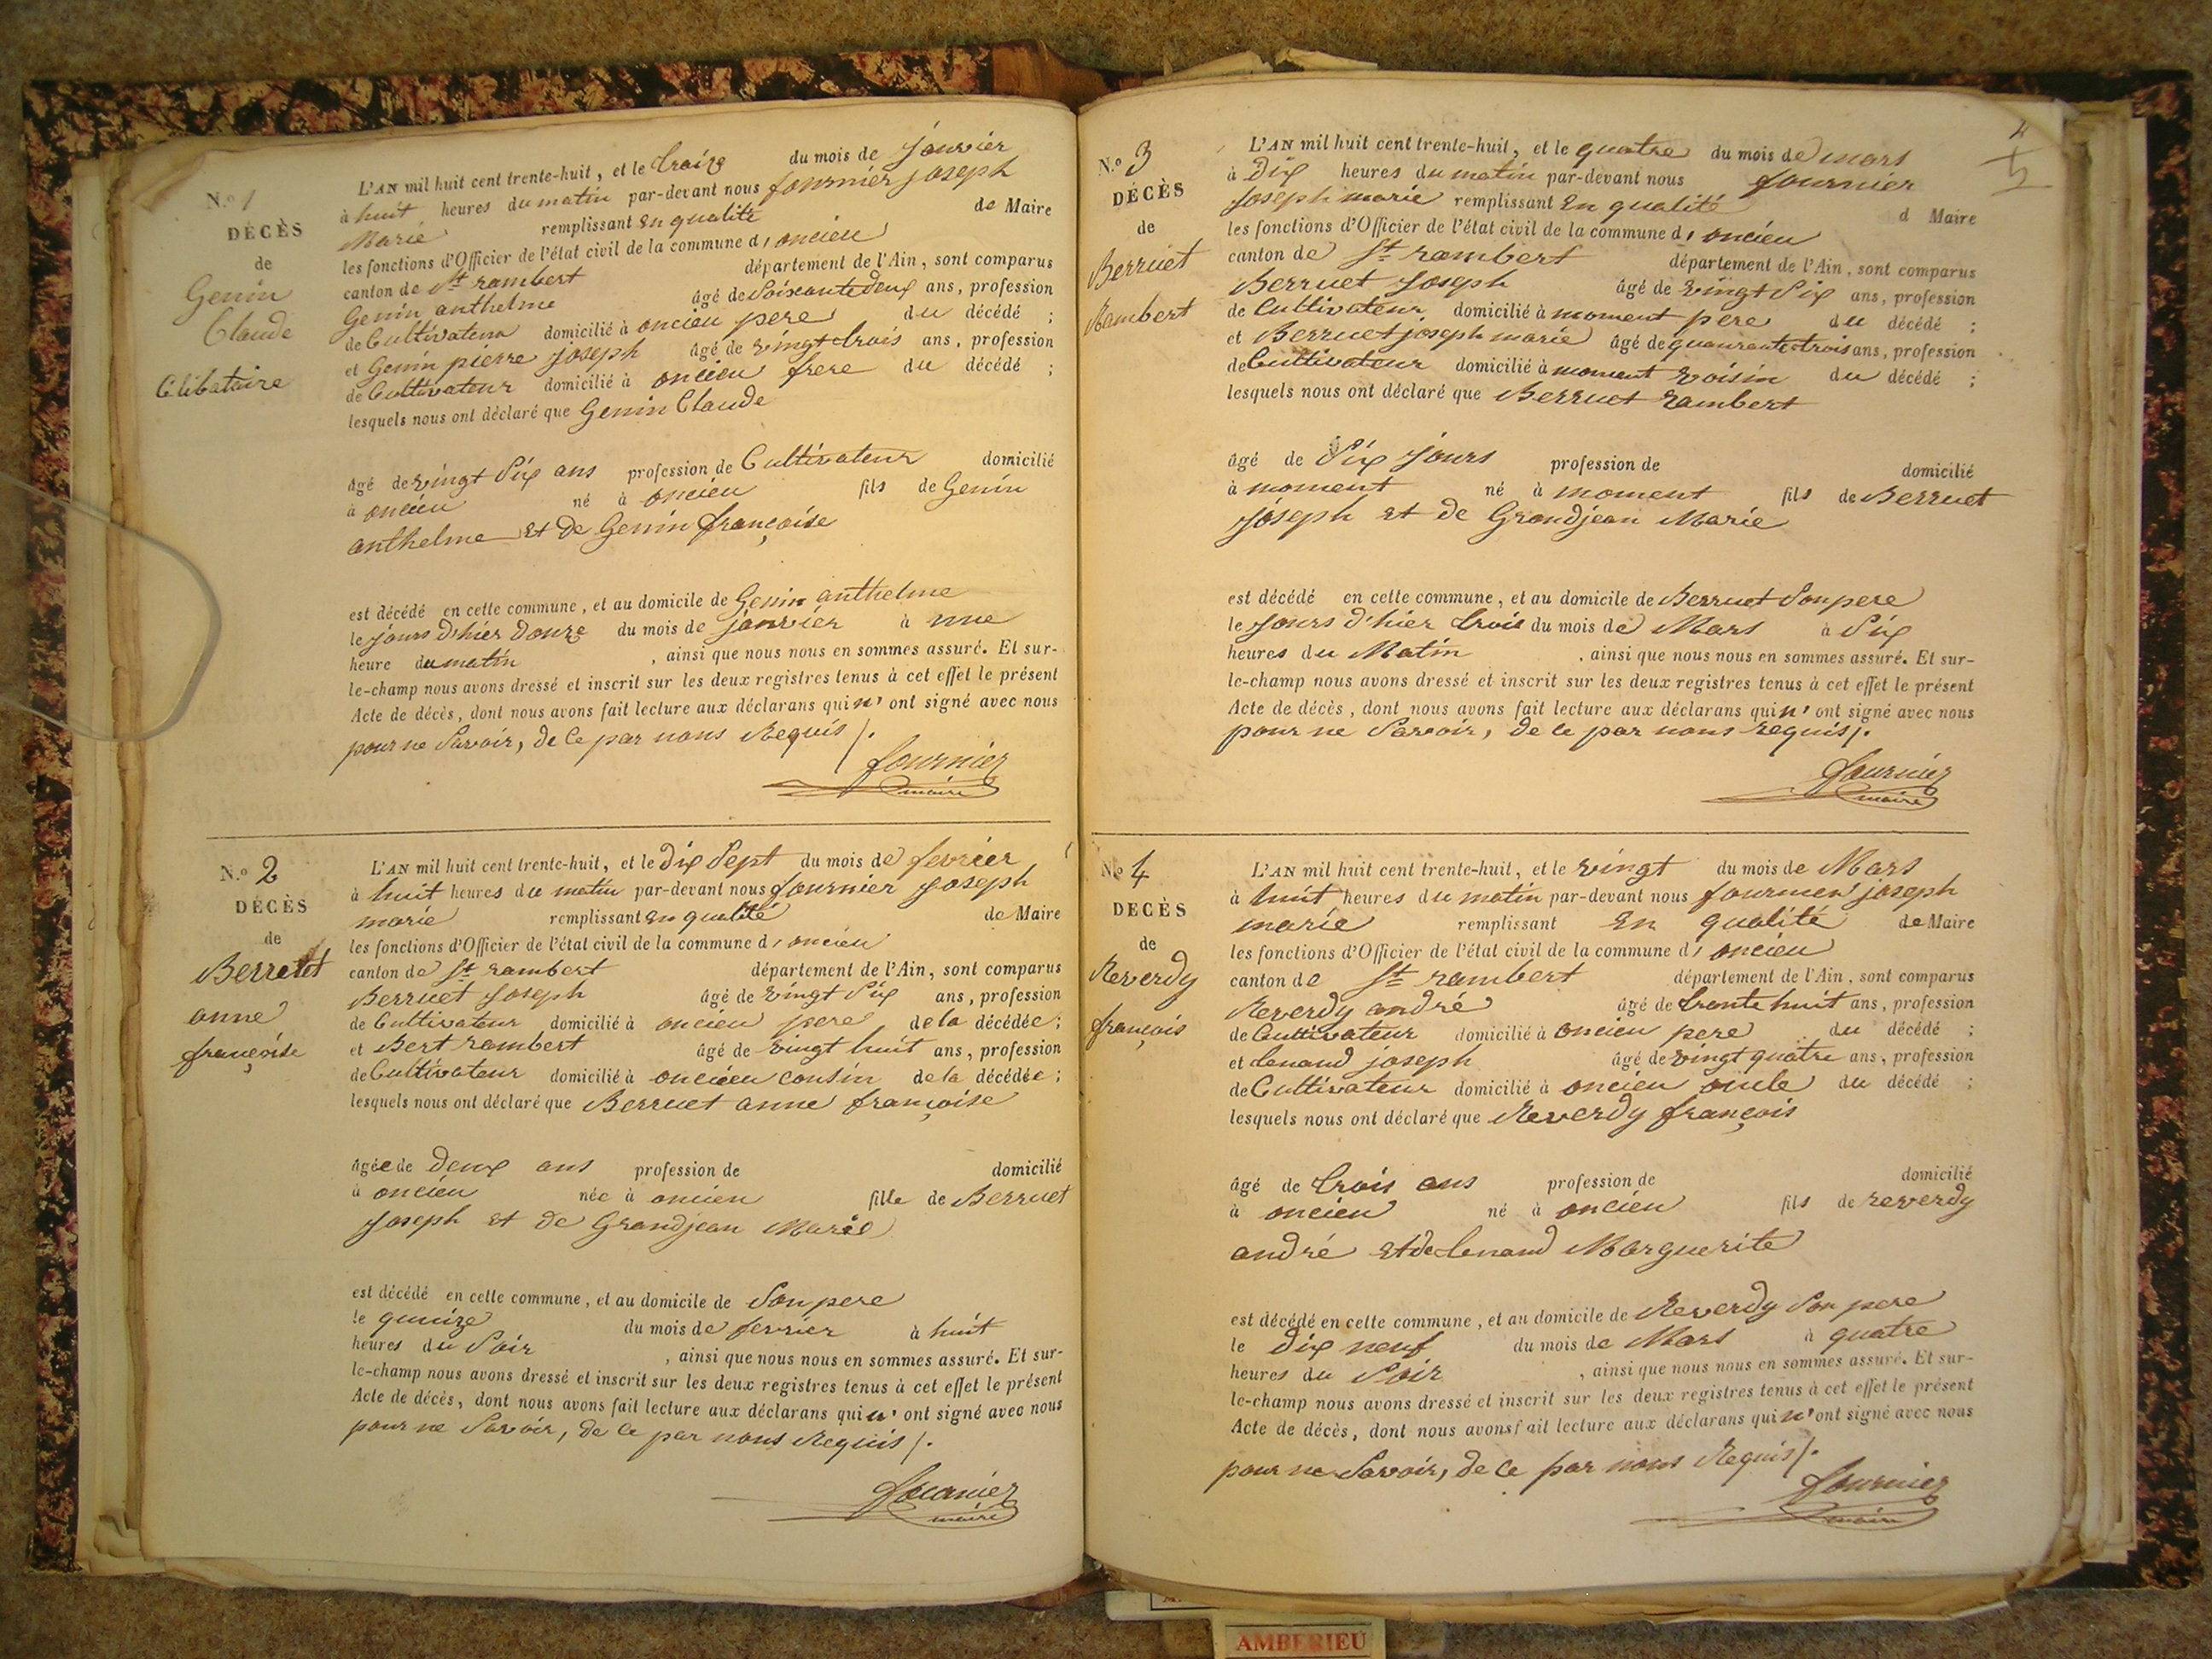 N.o 1
DÉCÈS
de
Genin
Claude
Célibataire
L'AN mil huit cent trente-huit, et le treize du mois de janvier
à huit heures du matin par-devant nous fournier joseph
Marie remplissant en qualité de Maire
les fonctions d'Officier de l'état civil de la commune d'oncieu
canton de St rambert département de l'Ain, sont comparus
Genin anthelme âgé de Soixante deux ans, profession
de Cultivateur domicilié à oncieu pere du décédé ;
et Genin pierre joseph âgé de vingt trois ans, profession
de Cultivateur domicilié à oncieu frere du décédé ;
lesquels nous ont déclaré que Genin Claude
âgé de vingt Six ans profession de Cultivateur domicilié
à oncieu né à oncieu fils de Genin
anthelme et de Genin françoise
est décédé en cette commune, et au domicile de Genin anthelme
le jours d'hier Douze du mois de janvier à une
heure du matin , ainsi que nous nous en sommes assuré. Et sur-
le-champ nous avons dressé et inscrit sur les deux registres tenus à cet effet le présent
Acte de décès, dont nous avons fait lecture aux déclarans qui n' ont signé avec nous
pour ne Savoir, de Ce par nous Requis /.
fournier
maire
N.o 2
DÉCÈS
de
Berruet
anne
françoise
L'AN mil huit cent trente-huit, et le Dix Sept du mois de fevrier
à huit heures du matin par-devant nous fournier joseph
marie remplissant en qualité de Maire
les fonctions d'Officier de l'état civil de la commune d'oncieu
canton de St rambert département de l'Ain, sont comparus
Berruet Joseph âgé de vingt Six ans, profession
de Cultivateur domicilié à oncieu pere de la décédée ;
et Bert rambert âgé de vingt huit ans, profession
de Cultivateur domicilié à oncieu cousin de la décédée ;
lesquels nous ont déclaré que Berruet anne françoise
âgée de Deux ans profession de domicilié
à oncieu née à oncieu fille de Berruet
Joseph et de Grandjean Marie
est décédé en cette commune, et au domicile de Son pere
le quinze du mois de fevrier à huit
heures du Soir , ainsi que nous nous en sommes assuré. Et sur-
le-champ nous avons dressé et inscrit sur les deux registres tenus à cet effet le présent
Acte de décès, dont nous avons fait lecture aux déclarans qui n' ont signé avec nous
pour ne Savoir, de Ce par nous Requis /.
fournier
maire
N.o 3
DÉCÈS
de
Berruet
Rambert
L'AN mil huit cent trente-huit, et le quatre du mois de mars
à Dix heures du matin par-devant nous fournier
Joseph marie remplissant en qualité d Maire
les fonctions d'Officier de l'état civil de la commune d'oncieu
canton de St rambert département de l'Ain, sont comparus
Berruet Joseph âgé de vingt Six ans, profession
de Cultivateur domicilié à moment pere du décédé ;
et Berruet joseph marie âgé de quaurante trois ans, profession
de Cultivateur domicilié à moment voisin du décédé ;
lesquels nous ont déclaré que Berruet rambert
âgé de Six jours profession de domicilié
à moment né à moment fils de Berruet
Joseph et de Grandjean Marie
est décédé en cette commune, et au domicile de Berruet Son pere
le Jours d'hier trois du mois de Mars à Six
heures du Matin , ainsi que nous nous en sommes assuré. Et sur-
le-champ nous avons dressé et inscrit sur les deux registres tenus à cet effet le présent
Acte de décès, dont nous avons fait lecture aux déclarans qui n' ont signé avec nous
pour ne Savoir, de Ce par nous requis /.
fournier
maire
N.o 4
DÉCÈS
de
Reverdy
françois
L'AN mil huit cent trente-huit, et le vingt du mois de Mars
à huit heures du matin par-devant nous fournier joseph
marie remplissant en qualité de Maire
les fonctions d'Officier de l'état civil de la commune d'oncieu
canton de St rambert département de l'Ain, sont comparus
Reverdy andré âgé de trente huit ans, profession
de Cultivateur domicilié à oncieu pere du décédé ;
et lenand joseph âgé de vingt quatre ans, profession
de Cultivateur domicilié à oncieu oncle du décédé ;
lesquels nous ont déclaré que Reverdy françois
âgé de trois ans profession de domicilié
à oncieu né à oncieu fils de reverdy
andré et de lenand Marguerite
est décédé en cette commune, et au domicile de Reverdy Son pere
le Dix neuf du mois de Mars à quatre
heures du Soir , ainsi que nous nous en sommes assuré. Et sur-
le-champ nous avons dressé et inscrit sur les deux registres tenus à cet effet le présent
Acte de décès, dont nous avons fait lecture aux déclarans qui n' ont signé avec nous
pour ne Savoir, de Ce par nous Requis /.
fournier
maire
AMBERIEU